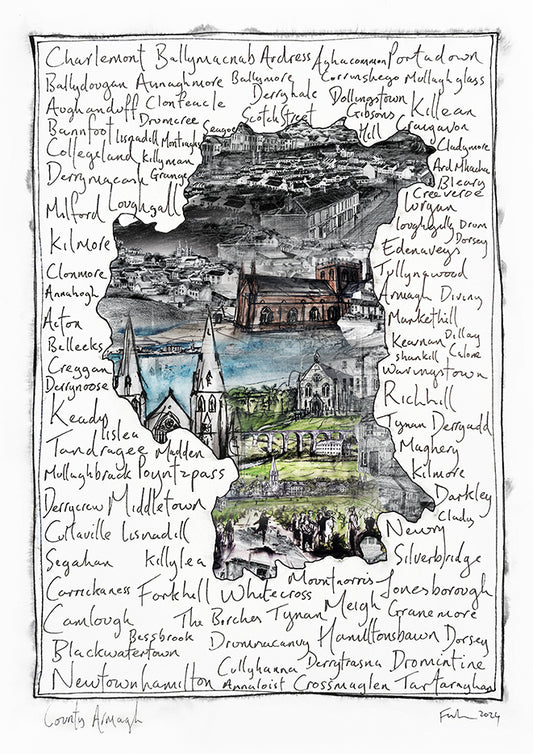 Charlemont Ballymacnab Ardress Aghacommon Portadown
Ballydougan Annaghmore Ballymore Corrunshego Mullaghglass
Aughanduff Clonfeacle Derryhale Dollingstown Killean
Drumcree Scotch Street Gibsons Hill Craigavon
Bannfoot Lisnadill Montiaghs Seagoe Cladymore
Collegeland Killyman Ard Mhacha
Derrymacash Grange Bleary
Creeveroe
Milford Loughgall Lurgan
Loughgilly Drum
Kilmore Edenaveys Dorsey
Clonmore Tullynawood
Annahogh Armagh Diviny
Acton Markethill
Belleeks Kearnan Dillay
Creggan Shankill Calone
Derrynoose Waringstown
Keady Richhill
Islea Tynan Derryadd
Tandragee Madden Maghery
Mullaghbrack Poyntzpass Kilmore
Derrycraw Middletown Darkley
Clady
Cullaville Lisnadill Newry
Segahan Killylea Silverbridge
Carrickaness Forkhill Whitecross Mountnorris Jonesborough
Camlough The Birches Tynan Meigh Granemore
Blackwatertown Bessbrook Drumnacanvy Hamiltonsbawn Dorsey
Cullyhanna Derrytrasna Dromintine
Newtownhamilton Annaloist Crossmaglen Tartaraghan
County Armagh
2024